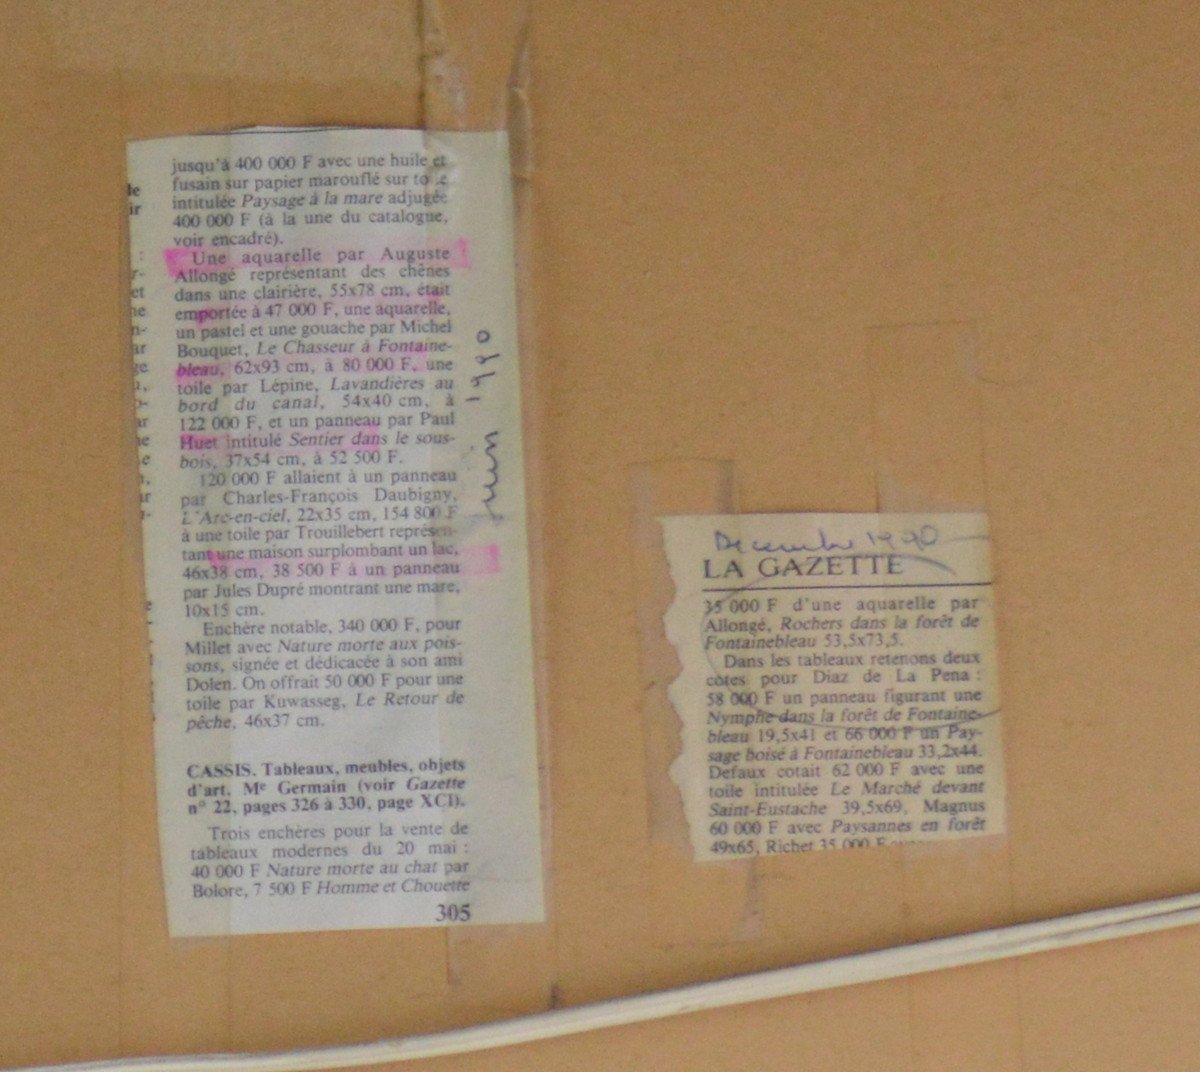 jusqu'à 400 000 F avec une huile et
fusain sur papier marouflé sur toile
intitulée Paysage à la mare adjugée
400 000 F (à la une du catalogue,
voir encadré).
Une aquarelle par Auguste
Allongé représentant des chênes
dans une clairière, 55x78 cm, était
emportée à 47 000 F, une aquarelle,
un pastel et une gouache par Michel
Bouquet, Le Chasseur à Fontaine-
bleau, 62x93 cm, à 80 000 F, une
toile par Lépine, Lavandières au
bord du canal, 54x40 cm, à
122 000 F, et un panneau par Paul
Huet intitulé Sentier dans le sous-
bois, 37x54 cm, à 52 500 F.
120 000 F allaient à un panneau
par Charles-François Daubigny,
L'Arc-en-ciel, 22x35 cm, 154 800 F
à une toile par Trouillebert représen-
tant une maison surplombant un lac,
46x38 cm, 38 500 F à un panneau
par Jules Dupré montrant une mare,
10x15 cm.
Enchère notable, 340 000 F, pour
Millet avec Nature morte aux pois-
sons, signée et dédicacée à son ami
Dolen. On offrait 50 000 F pour une
toile par Kuwasseg, Le Retour de
pêche, 46x37 cm.
CASSIS. Tableaux, meubles, objets
d'art. Me Germain (voir Gazette
n° 22, pages 326 à 330, page XCI).
Trois enchères pour la vente de
tableaux modernes du 20 mai :
40 000 F Nature morte au chat par
Bolore, 7 500 F Homme et Chouette
305
Juin 1990
Decembre 1990
LA GAZETTE
35 000 F d'une aquarelle par
Allongé, Rochers dans la forêt de
Fontainebleau 53,5x73,5.
Dans les tableaux retenons deux
cotes pour Diaz de La Pena :
58 000 F un panneau figurant une
Nymphe dans la forêt de Fontaine-
bleau 19,5x41 et 66 000 F un Pay-
sage boisé à Fontainebleau 33,2x44.
Defaux cotait 62 000 F avec une
toile intitulée Le Marché devant
Saint-Eustache 39,5x69, Magnus
60 000 F avec Paysannes en forêt
49x65, Richet 35 000 F